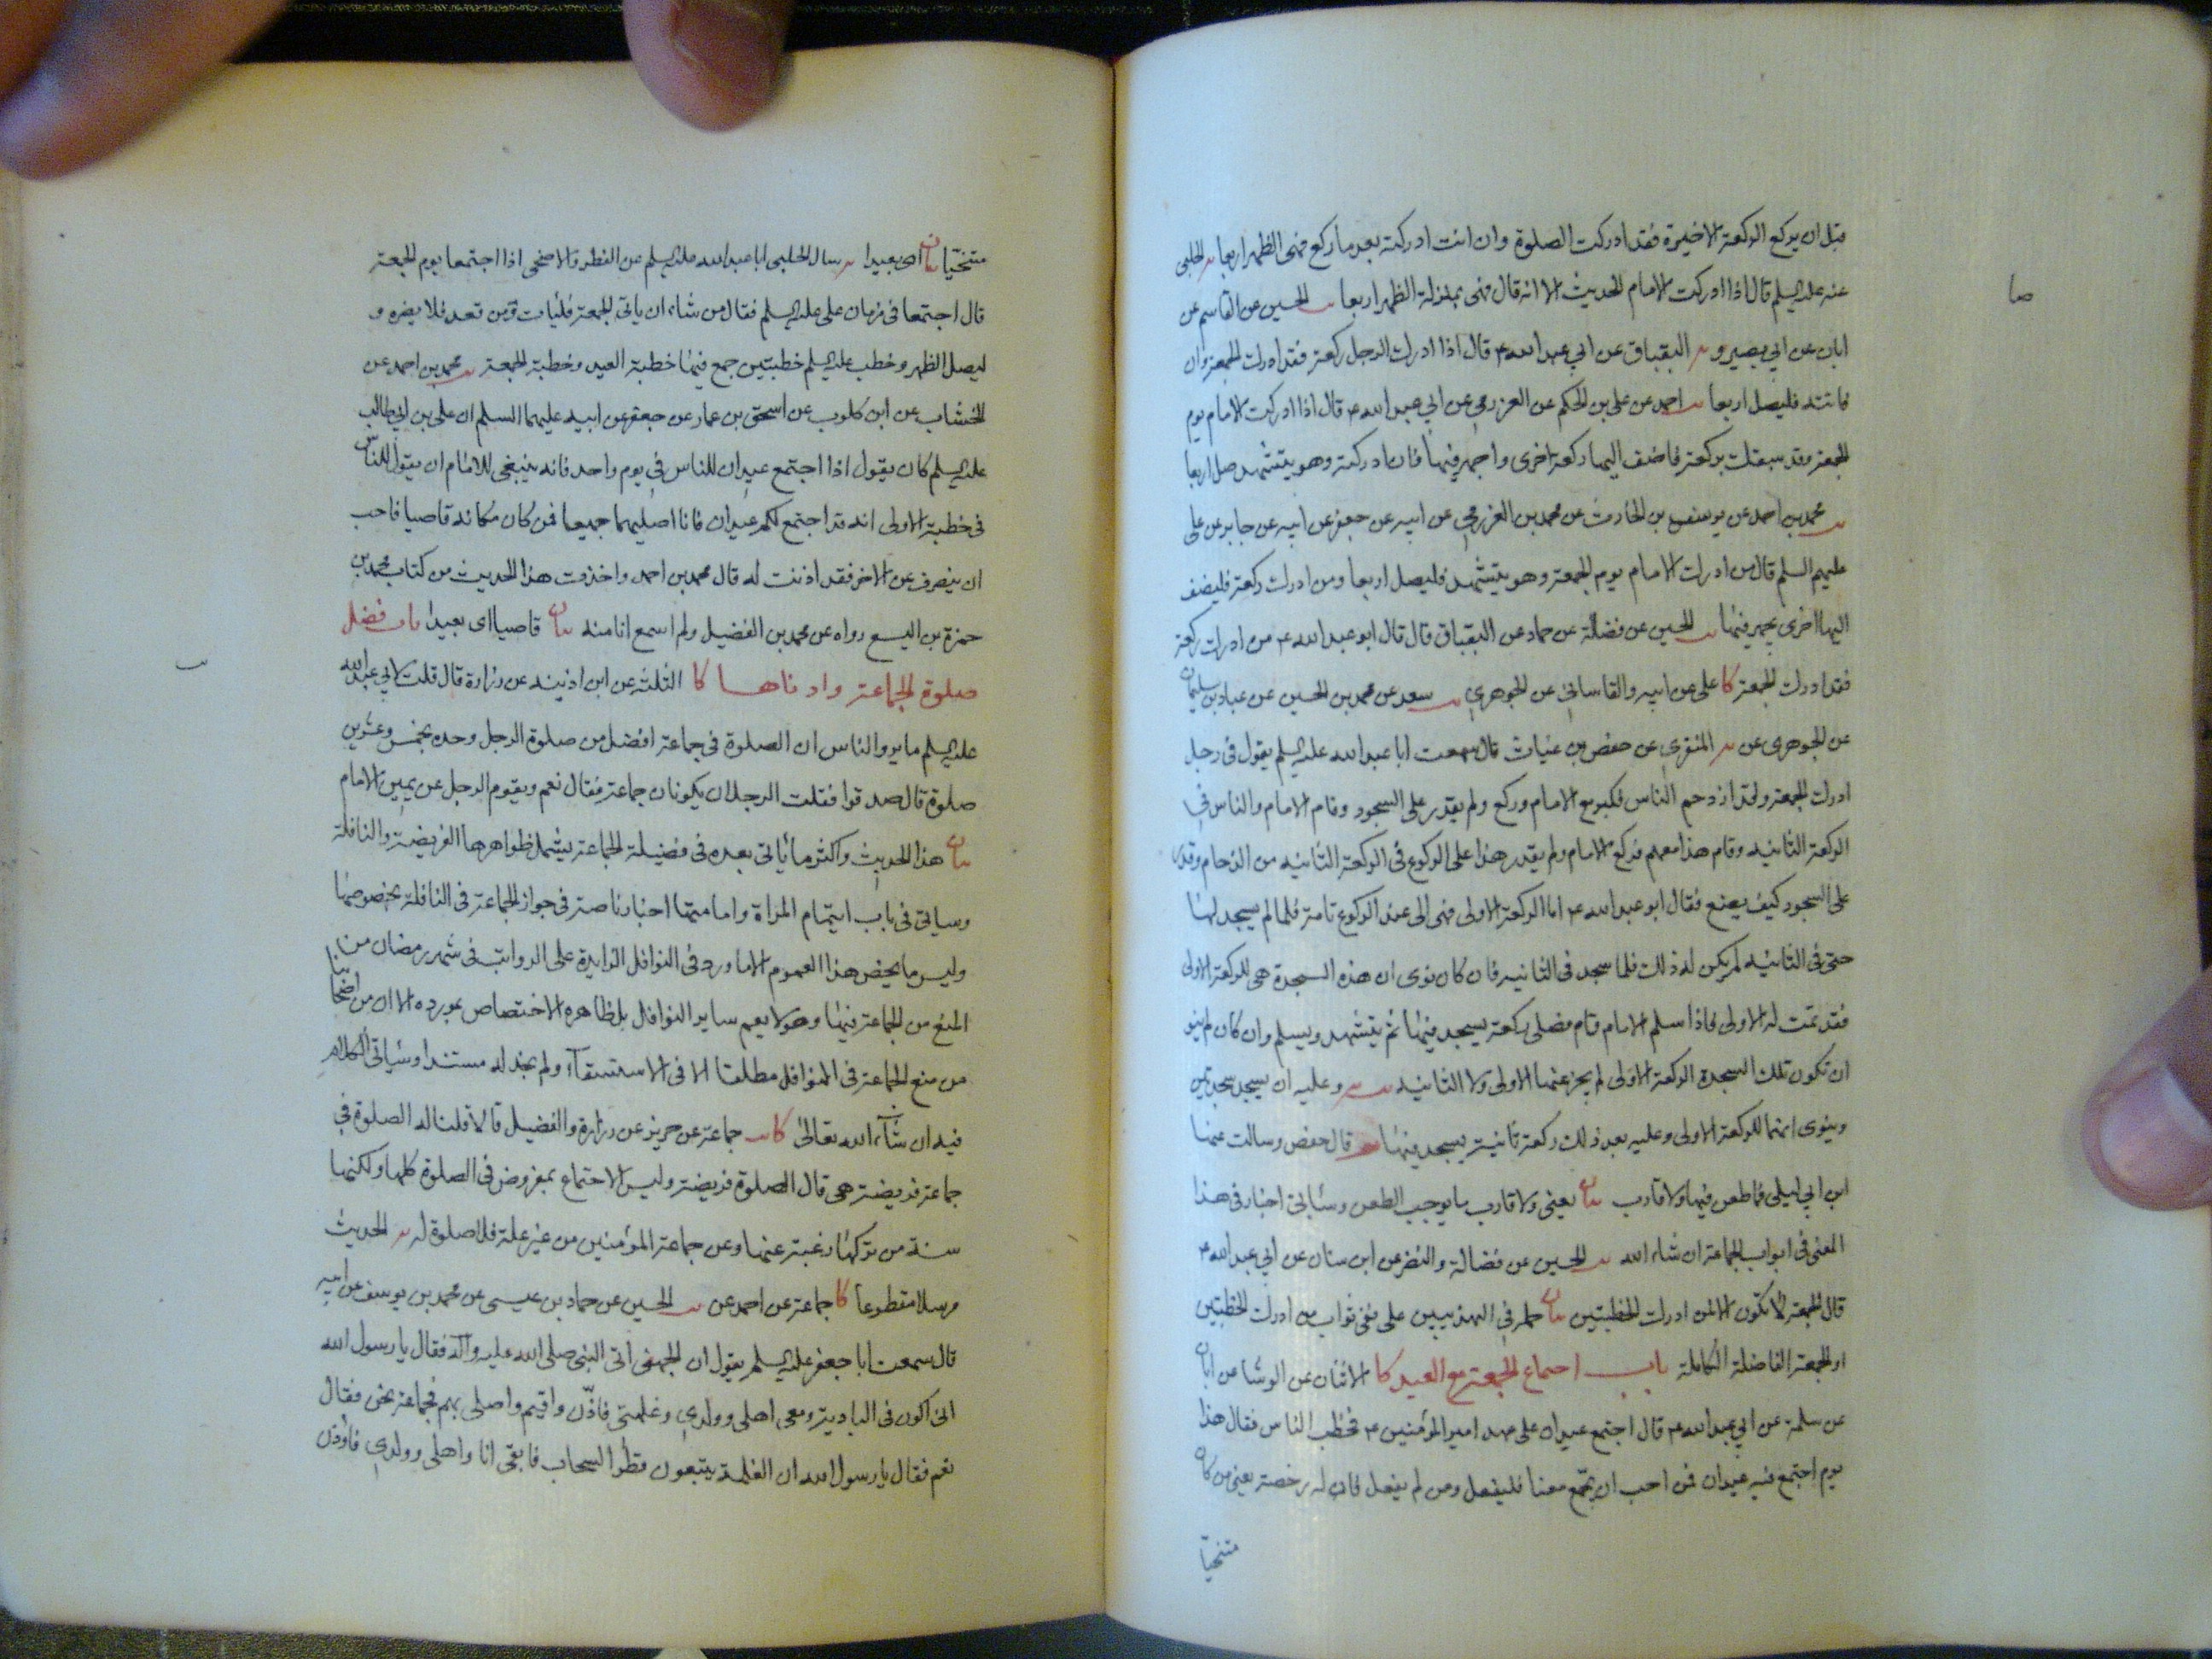 قبل ان يركع الركعة الاخيرة فقد ادركت الصلوة وان انت ادركته بعد ما ركع فهى الظهر اربعا يه الحلبى
صا
عنه عليه السلم قال اذا ادركت الامام الحديث الا انه قال فهى بمنزلة الظهر اربعا يب الحسين عن القاسم عن
ابان عن ابي بصير و يه البقباق عن ابي عبد الله ع قال اذا ادرك الرجل ركعة فقد ادرك الجمعة وان
فاتته فليصل اربعا يب احمد عن علي بن الحكم عن العزرمي عن ابي عبد الله ع قال اذا ادركت الامام يوم
الجمعة وقد سبقك بركعة فاضف اليها ركعة اخرى واجهر فيها فان ادركته وهو يتشهد صل اربعا
يب محمد بن احمد عن يوسف بن الحارث عن محمد بن العزرمي عن ابيه عن جعفر عن ابيه عن جابر عن علي
عليهم السلم قال من ادرك الامام يوم الجمعة وهو يتشهد فليصل اربعا ومن ادرك ركعة فليضف
اليها اخرى يجهر فيها يب الحسين عن فضالة عن حماد عن البقباق قال قال ابو عبد الله ع من ادرك ركعة
فقد ادرك الجمعة كا على عن ابيه والقاساني عن الجوهري يب سعد عن محمد بن الحسين عن عباد بن سليمان
عن الجوهرى عن يه المنقرى عن حفص بن غياث قال سمعت ابا عبد الله عليه السلم يقول فى رجل
ادرك الجمعة وقد ازدحم الناس فكبر مع الامام وركع ولم يقدر على السجود وقام الامام والناس في
الركعة الثانيه وقام هذا معهم فركع الامام ولم يقدر هذا على الركوع في الركعة الثانيه من الزحام وقدر
على السجود كيف يصنع فقال ابو عبد الله ع اما الركعة الاولى فهى الى عند الركوع تامة فلما لم يسجد لها
حتى فى الثانيه لم يكن له ذلك فلما سجد فى الثانيه فان كان نوى ان هذه السجدة هى للركعة الاولى
فقد تمت له الاولى فاذا سلم الامام قام فصلى ركعة يسجد فيها ثم يتشهد ويسلم وان كان لم ينو
ان تكون تلك السجدة الركعة الاولى لم يجز عنه الاولى ولا الثانيه يب وعليه ان يسجد سجدتين
وينوى انهما للركعة الاولى وعليه بعد ذلك ركعة ثانية يسجد فيها قال حفص وسالت عنها
ابن ابي ليلى فما طعن فيها ولا قارب بيان يعنى ولا قارب ما يوجب الطعن وسياتى اخبار فى هذا
المعنى فى ابواب الجماعة ان شاء الله يب الحسين عن فضالة والنضر عن ابن سنان عن ابي عبد الله ع
قال الجمعة لا تكون الا لمن ادرك الخطبتين بيان حمله في التهذيبين على نفى ثواب من ادرك الخطبتين
او الجمعة الفاضلة الكاملة باب اجتماع الجمعة مع العيد كا الاثنان عن الوشا عن ابان
عن سلمة عن ابي عبد الله ع قال اجتمع عيدان على عهد امير المؤمنين ع فخطب الناس فقال هذا
يوم اجتمع فيه عيدان فمن احب ان يجمع معنا فليفعل ومن لم يفعل فان له رخصة يعنى من كان
متنحيا
متنحيا بيان اى بعيدا يه سال الحلبى ابا عبد الله عليه السلم عن الفطر والاضحى اذا اجتمعا يوم الجمعة
قال اجتمعا فى زمان على عليه السلم فقال من شاء ان ياتى الجمعة فليات ومن قعد فلا يضره و
ليصل الظهر وخطب عليه السلم خطبتين جمع فيها خطبة العيد وخطبة الجمعة يب محمد بن احمد عن
الخشاب عن ابن كلوب عن اسحق بن عمار عن جعفر عن ابيه عليهما السلم ان على بن ابي طالب
عليه السلم كان يقول اذا اجتمع عيدان للناس في يوم واحد فانه ينبغى للامام ان يقول للناس
فى خطبة الاولى انه قد اجتمع لكم عيدان فانا اصليهما جميعا فمن كان مكانه قاصيا فاحب
ان ينصرف عن الاخر فقد اذنت له قال محمد بن احمد واخذت هذا الحديث من كتاب محمد بن
حمزة بن اليسع رواه عن محمد بن الفضيل ولم اسمع انا منه بيان قاصيا اى بعيدا باب فضل
صلوة الجماعة وادناها كا الثلثه عن ابن اذينه عن زرارة قال قلت لابي عبد الله
عليه السلم ما يروى الناس ان الصلوة في جماعة افضل من صلوة الرجل وحده بخمس وعشرين
صلوة قال صدقوا فقلت الرجلان يكونان جماعة فقال نعم ويقوم الرجل عن يمين الامام
بيان هذا الحديث واكثر ما ياتى بعده فى فضيلة الجماعة يشمل ظواهرها الفريضة والنافلة
وسياتى فى باب ايتمام المراة وامامتها اخبار ناصة فى جواز الجماعة فى النافلة بخصوصها
وليس ما يخص هذا العموم الا ما ورد فى النوافل الزايدة على الرواتب فى شهر رمضان من
المنع من الجماعة فيها وهو لا يعم ساير النوافل بل ظاهره الاختصاص بمورده الا ان من اصحابنا
من منع الجماعة فى النوافل مطلقا الا فى الاستسقاء ولم نجد له مستندا وسياتى الكلام
فيه ان شاء الله تعالى كا يب جماعة عن حريز عن زرارة والفضيل قالا قلنا له الصلوة في
جماعة فريضة هى قال الصلوة فريضة وليس الاجتماع بمفروض فى الصلوة كلها ولكنها
سنة من تركها رغبة عنها وعن جماعة المؤمنين من غير علة فلا صلوة له يه الحديث
مرسلا مقطوعا كا جماعة عن احمد عن يب الحسين عن حماد بن عيسى عن محمد بن يوسف عن ابيه
قال سمعت ابا جعفر عليه السلم يقول ان الجهنى اتى النبى صلى الله عليه وآله فقال يا رسول الله
انى اكون فى البادية ومعى اهلى وولدى وغلمتى فاذن واقيم واصلى بهم فجماعة نحن فقال
نعم فقال يا رسول الله ان الغلمة يتبعون قطر السحاب فابقى انا واهلى وولدى فاؤذن